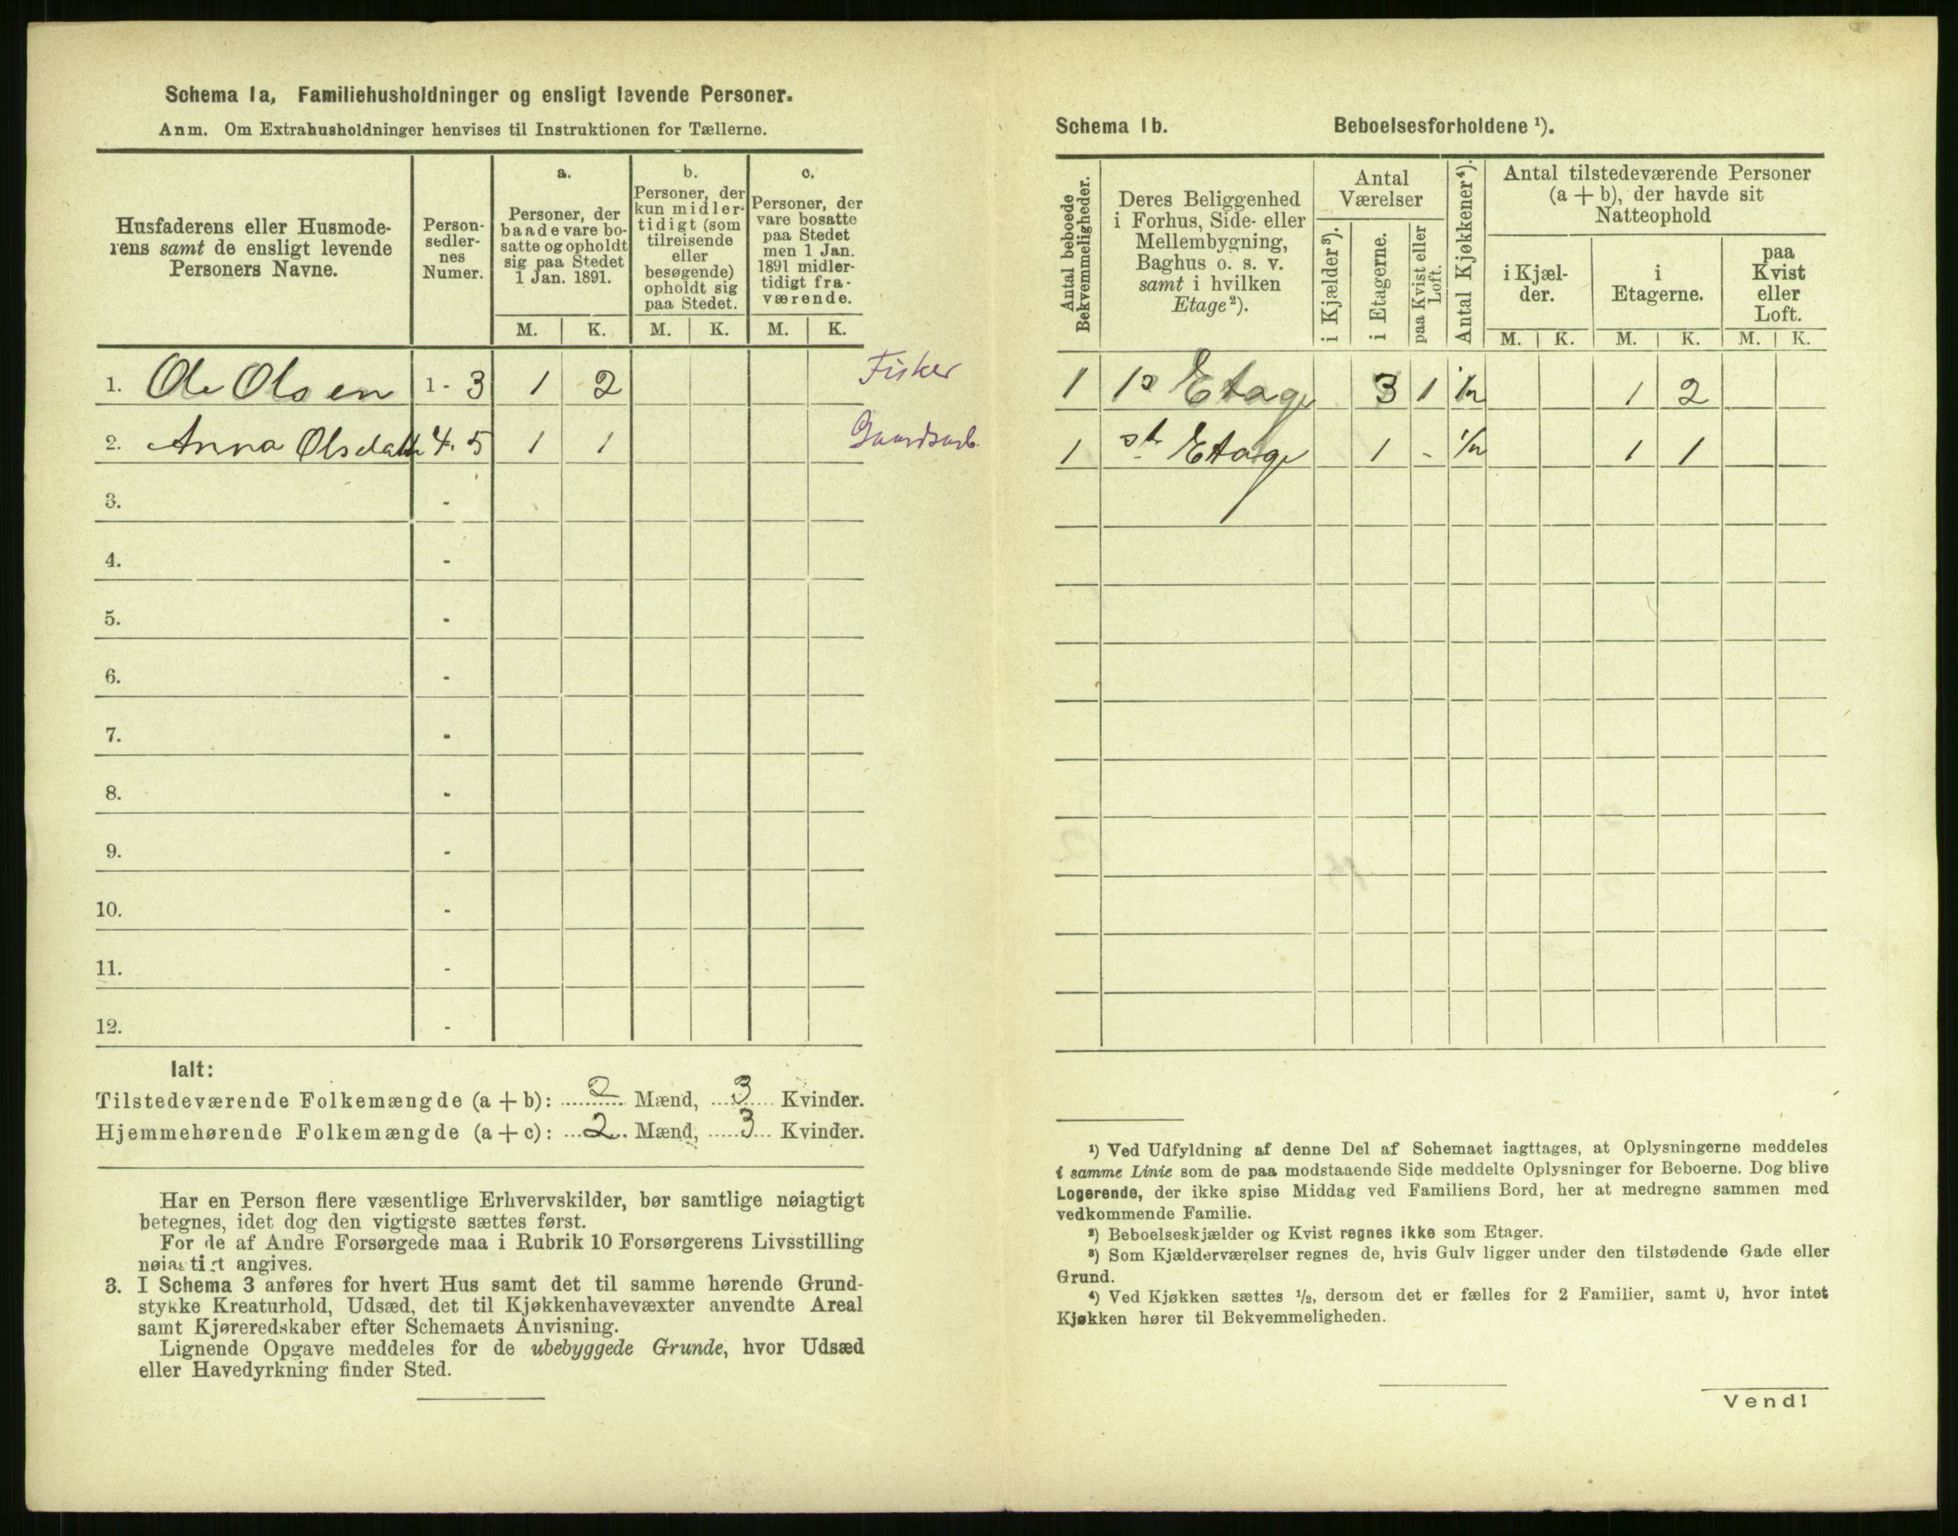 Schema 1a, Familiehusholdninger og ensligt levende Personer.
Anm. Om Extrahusholdninger henvises til Instruktionen for Tællerne.
Husfaderens eller Husmode-
rens samt de ensligt levende
Personers Navne.
Person-
sedler-
nes
Numer.
a.
Personer, der
baade vare bo-
satte og opholdt
sig paa Stedet
1 Jan. 1891.
b.
Personer, der
kun midler-
tidigt (som
tilreisende
eller
besøgende)
opholdt sig
paa Stedet.
c.
Personer, der
vare bosatte
paa Stedet
men 1 Jan.
1891 midler-
tidigt fra-
værende.
M. K. M. K. M. K.
1. Ole Olsen 1 - 3 1 2 Fisker
2. Anna Olsdatter 4 - 5 1 1 Gaardsarb.
3. -
4. -
5. -
6. -
7. -
8. -
9. -
10. -
11. -
12. -
Ialt:
Tilstedeværende Folkemængde (a + b): 2 Mænd, 3 Kvinder.
Hjemmehørende Folkemængde (a + c): 2 Mænd, 3 Kvinder.
Har en Person flere væsentlige Erhvervskilder, bør samtlige nøiagtigt
betegnes, idet dog den vigtigste sættes først.
For de af Andre Forsørgede maa i Rubrik 10 Forsørgerens Livsstilling
nøiagtigt angives.
3. I Schema 3 anføres for hvert Hus samt det til samme hørende Grund-
stykke Kreaturhold, Udsæd, det til Kjøkkenhavevæxter anvendte Areal
samt Kjøreredskaber efter Schemaets Anvisning.
Lignende Opgave meddeles for de ubebyggede Grunde, hvor Udsæd
eller Havedyrkning finder Sted.
Schema 1b. Beboelsesforholdene ¹).
Antal beboede
Bekvemmeligheder.
Deres Beliggenhed
i Forhus, Side- eller
Mellembygning,
Baghus o. s. v.
samt i hvilken
Etage²).
Antal
Værelser
i Kjælder³).
i Etagerne.
paa Kvist eller
Loft.
Antal Kjøkkener⁴).
Antal tilstedeværende Personer
(a + b), der havde sit
Natteophold
i Kjæl-
der.
i
Etagerne.
paa
Kvist
eller
Loft.
M. K. M. K. M. K.
1 1s Etage 3 1 1/2 1 2
1 st Etage 1 - 1/2 1 1
¹) Ved Udfyldning af denne Del af Schemaet iagttages, at Oplysningerne meddeles
i samme Linie som de paa modstaaende Side meddelte Oplysninger for Beboerne. Dog blive
Logerende, der ikke spise Middag ved Familiens Bord, her at medregne sammen med
vedkommende Familie.
²) Beboelseskjælder og Kvist regnes ikke som Etager.
³) Som Kjælderværelser regnes de, hvis Gulv ligger under den tilstødende Gade eller
Grund.
⁴) Ved Kjøkken sættes ½, dersom det er fælles for 2 Familier, samt 0, hvor intet
Kjøkken hører til Bekvemmeligheden.
Vend!